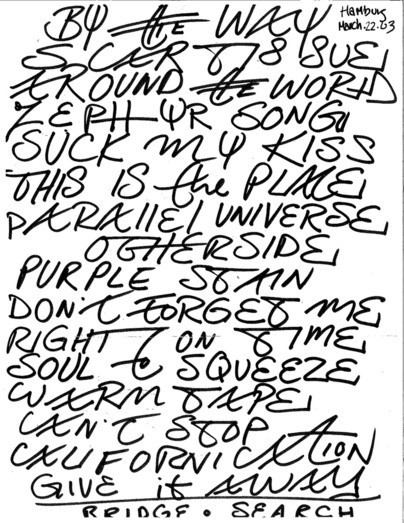 Hamburg
March.22.03
BY the WAY
SCAR TISSUE
AROUND the WORLD
ZEPHYR SONG
SUCK MY KISS
THIS IS the PLACE
PARAllEl UNIVERSE
OTHERSIDE
PURPLE STAIN
DON'T FORGET ME
RIGHT ON TIME
SOUL to SQUEEZE
WARM TAPE
CAN'T STOP
CALIFORNICATION
GIVE it AWAY
BRIDGE • SEARCH